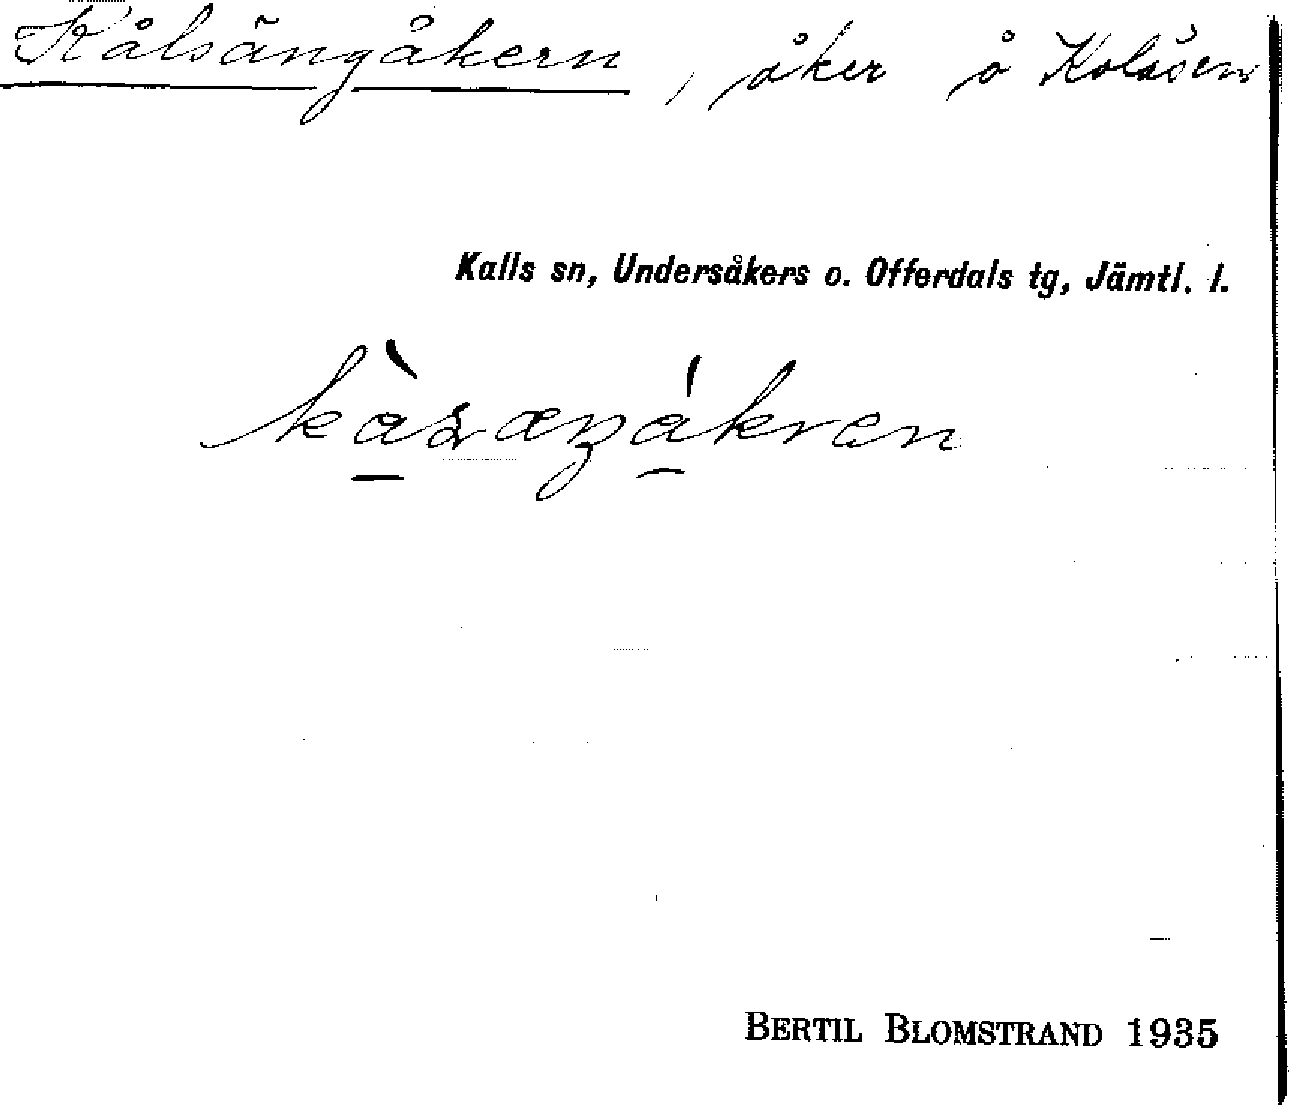 Kålsängåkern, åker å Kolåsen
Kalls sn, Undersåkers o. Offerdals tg, Jämtl. l.
BERTIL BLOMSTRAND 1935